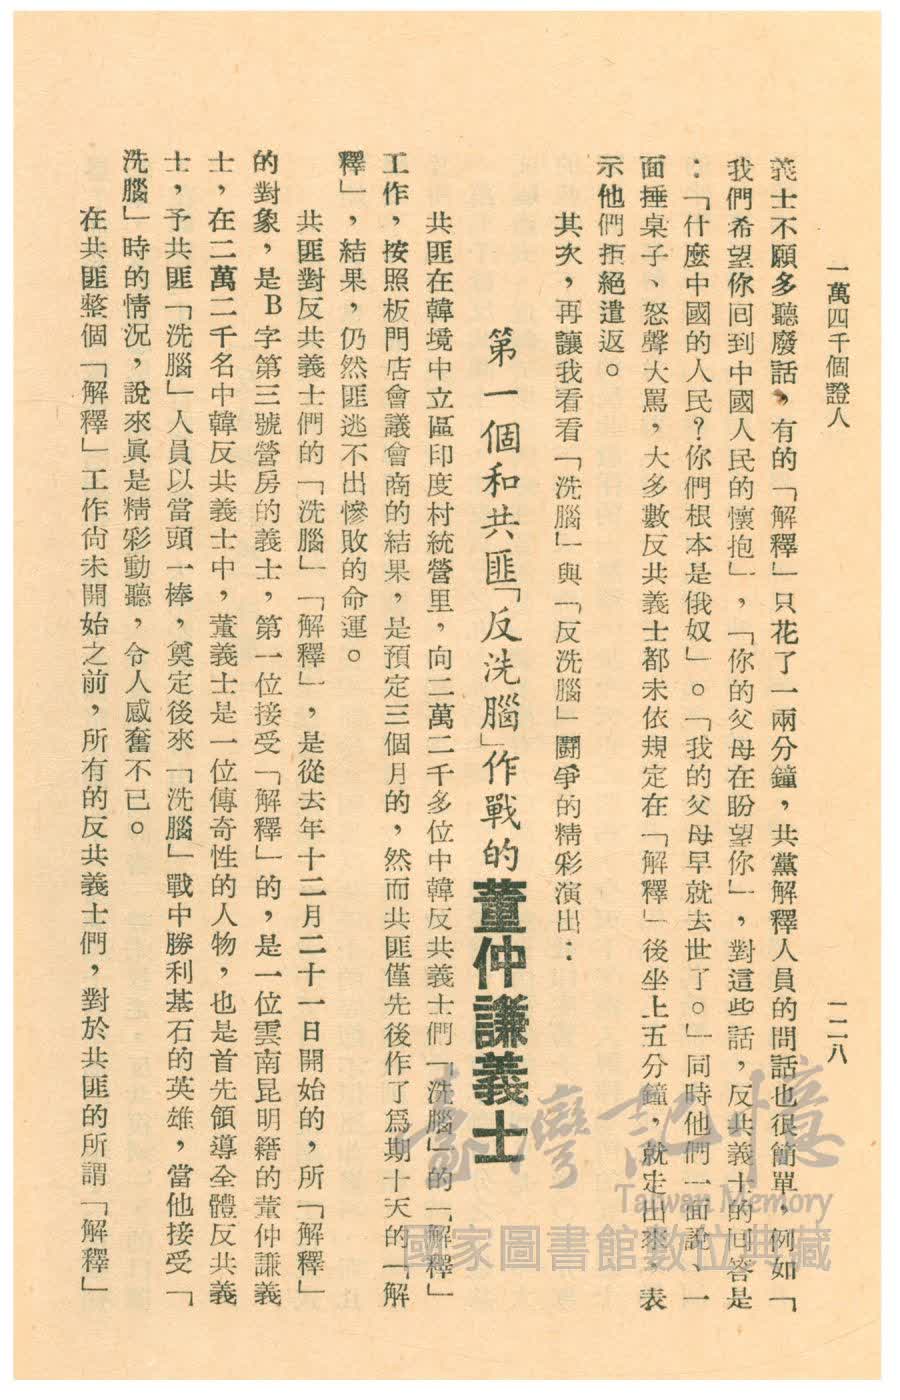 一萬四千個證人
一二八
義士不願多聽廢話，有的「解釋」只花了一兩分鐘，共黨解釋人員的問話也很簡單，例如「
我們希望你囘到中國人民的懷抱」，「你的父母在盼望你」，對這些話，反共義士的回答是
：「什麼中國的人民？你們根本是俄奴」。「我的父母早就去世了。」同時他們一面說、一
面捶桌子、怒聲大罵，大多數反共義士都未依規定在「解釋」後坐上五分鐘，就走出來，表
示他們拒絕遣返。
其次，再讓我看看「洗腦」與「反洗腦」鬪爭的精彩演出：
第一個和共匪「反洗腦」作戰的董仲謙義士
共匪在韓境中立區印度村統營里，向二萬二千多位中韓反共義士們「洗腦」的「解釋」
工作，按照板門店會議會商的結果，是預定三個月的，然而共匪僅先後作了爲期十天的「解
釋」，結果，仍然匪逃不出慘敗的命運。
共匪對反共義士們的「洗腦」「解釋」，是從去年十二月二十一日開始的，所「解釋」
的對象，是B字第三號營房的義士，第一位接受「解釋」的，是一位雲南昆明籍的董仲謙義
士，在二萬二千名中韓反共義士中，董義士是一位傳奇性的人物，也是首先領導全體反共義
士，予共匪「洗腦」人員以當頭一棒，奠定後來「洗腦」戰中勝利基石的英雄，當他接受「
洗腦」時的情況，說來眞是精彩動聽，令人感奮不已。
在共匪整個「解釋」工作尙未開始之前，所有的反共義士們，對於共匪的所謂「解釋」
臺灣記憶
Taiwan Memory
國家圖書館數位典藏